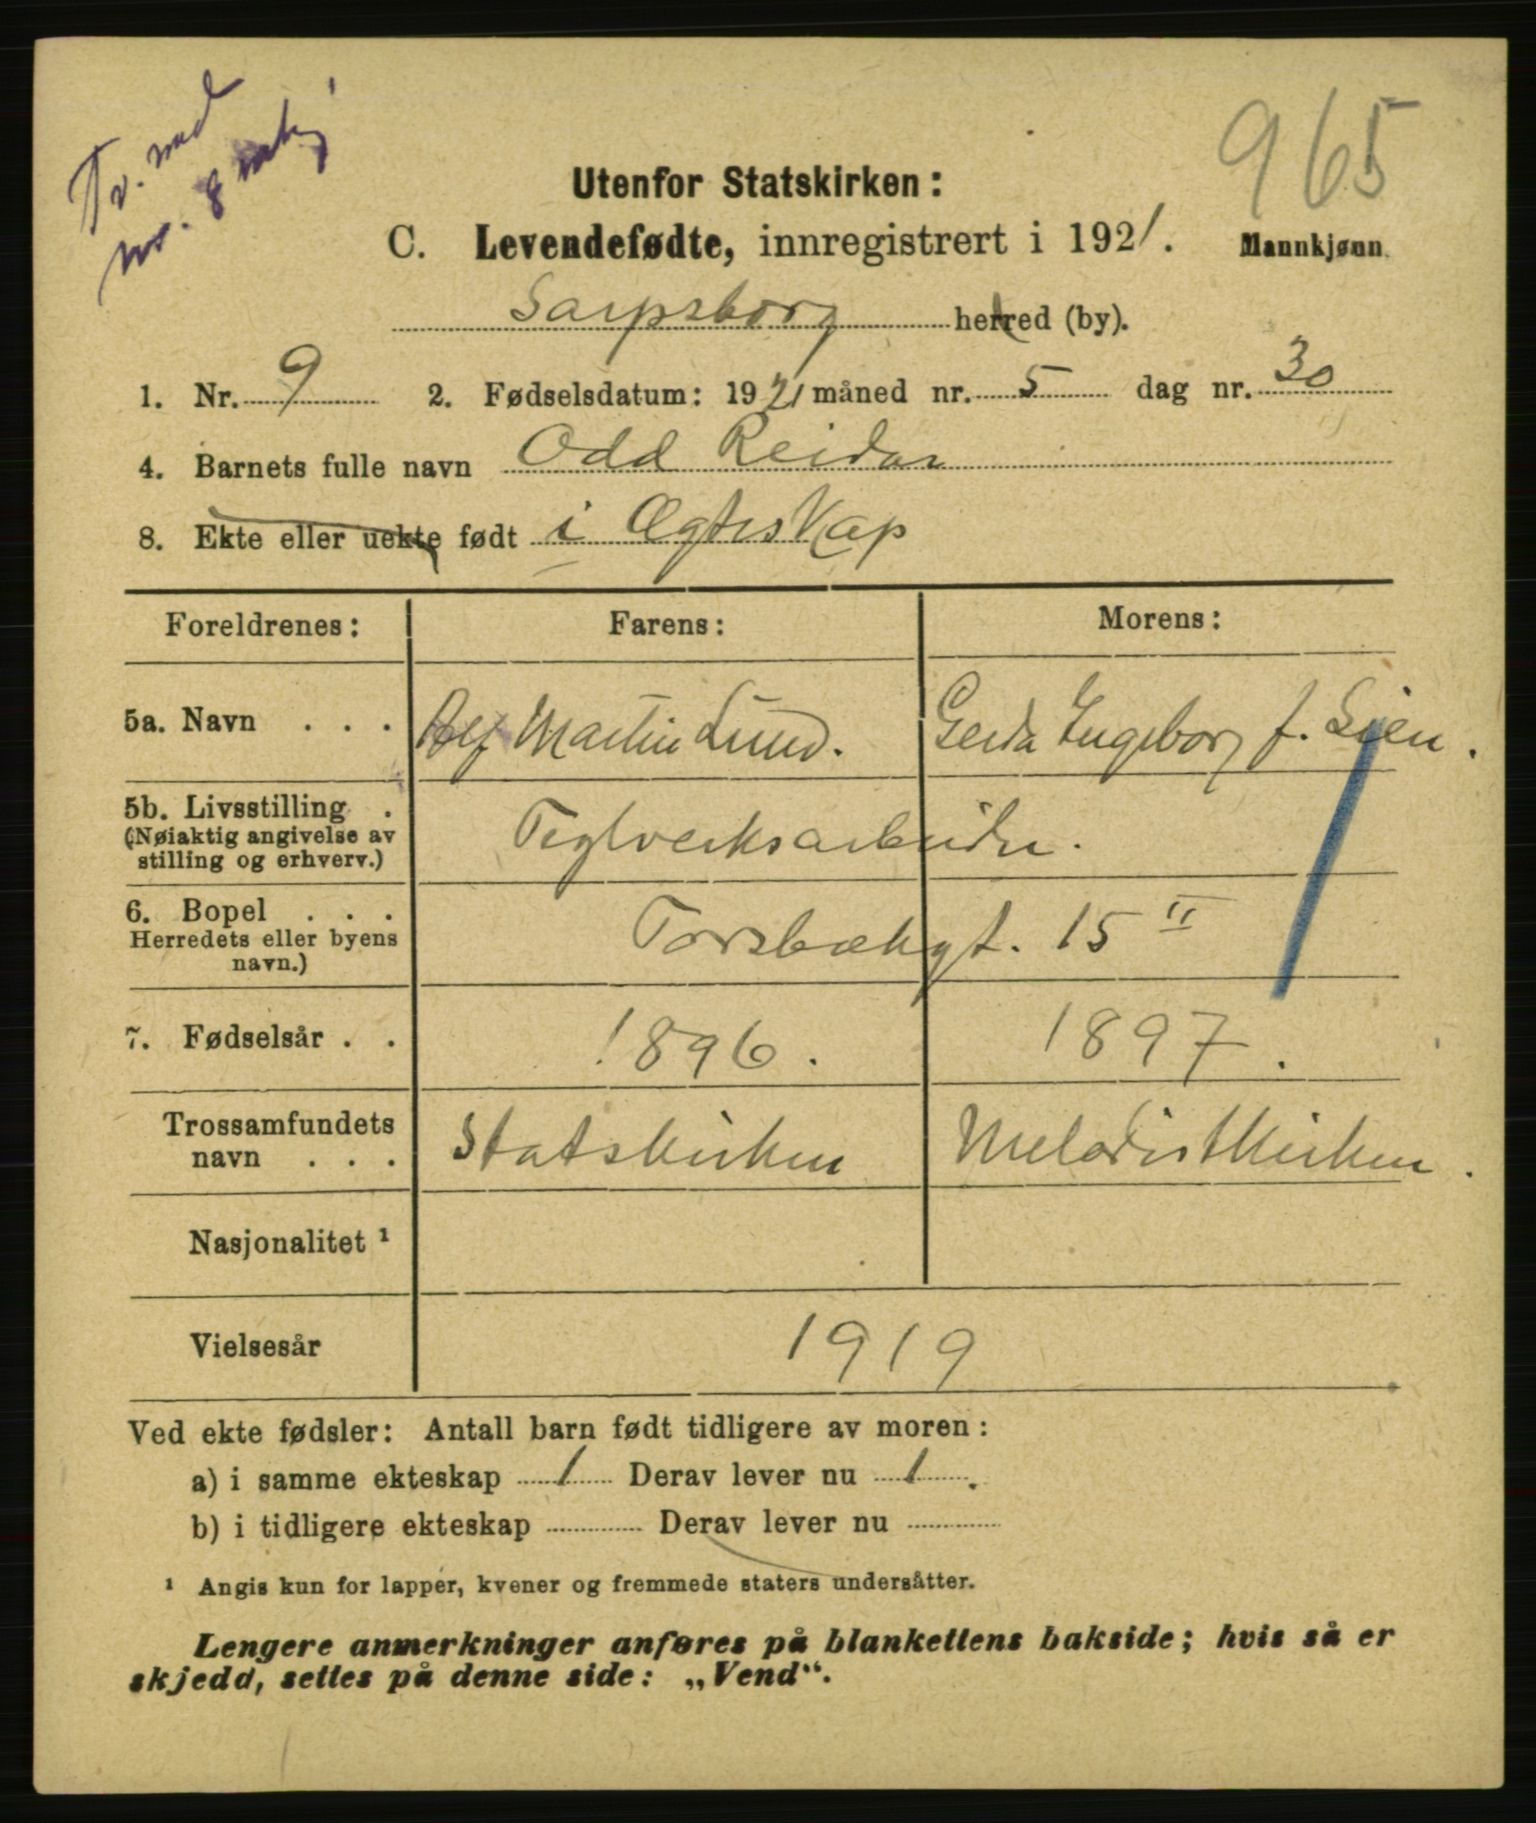 Tv. med
nr. 8 mkj
965
Utenfor Statskirken:
C. Levendefødte, innregistrert i 1921. Mannkjønn.
Sarpsborg herred (by).
1. Nr. 9 2. Fødselsdatum: 1921 måned nr. 5 dag nr. 30
4. Barnets fulle navn Odd Reidar
8. Ekte eller uekte født i Ægteskap
Foreldrenes: Farens: Morens:
5a. Navn . . . Alf Martin Lund. Gerda Ingeborg f. Lien.
5b. Livsstilling . Teglverksarbeider.
(Nøiaktig angivelse av
stilling og erhverv.)
6. Bopel . . . Torsbækgt. 15 II
Herredets eller byens
navn.)
7. Fødselsår . . 1896. 1897.
Trossamfundets
navn . . . Statskirken Metodistkirken.
Nasjonalitet ¹
Vielsesår 1919
Ved ekte fødsler: Antall barn født tidligere av moren:
a) i samme ekteskap 1 Derav lever nu 1.
b) i tidligere ekteskap Derav lever nu
¹ Angis kun for lapper, kvener og fremmede staters undersåtter.
Lengere anmerkninger anføres på blankettens bakside; hvis så er
skjedd, settes på denne side: „Vend“.